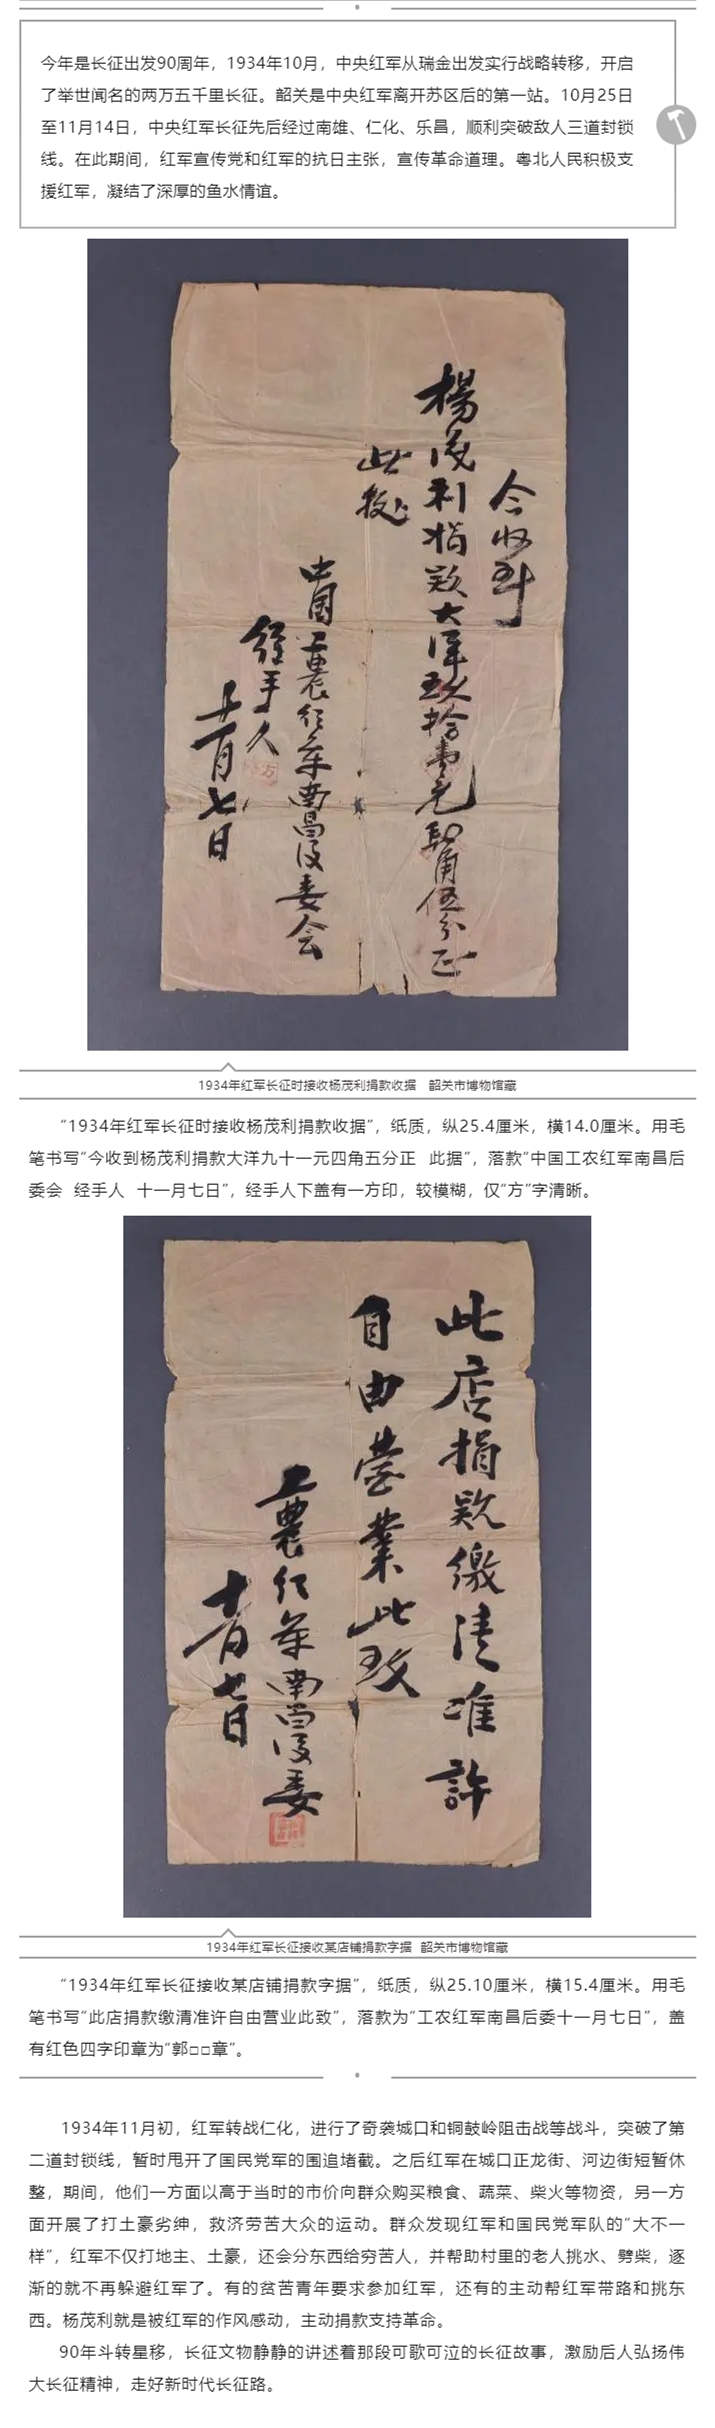 今年是长征出发90周年，1934年10月，中央红军从瑞金出发实行战略转移，开启
了举世闻名的两万五千里长征。韶关是中央红军离开苏区后的第一站。10月25日
至11月14日，中央红军长征先后经过南雄、仁化、乐昌，顺利突破敌人三道封锁
线。在此期间，红军宣传党和红军的抗日主张，宣传革命道理。粤北人民积极支
援红军，凝结了深厚的鱼水情谊。
今收到
楊茂利捐款大洋玖拾壹元四角伍分正
此据
中国工農红军南昌后委会
经手人
方
十一月七日
1934年红军长征时接收杨茂利捐款收据 韶关市博物馆藏
“1934年红军长征时接收杨茂利捐款收据”，纸质，纵25.4厘米，横14.0厘米。用毛
笔书写“今收到杨茂利捐款大洋九十一元四角五分正 此据”，落款“中国工农红军南昌后
委会 经手人 十一月七日”，经手人下盖有一方印，较模糊，仅“方”字清晰。
此店捐款缴清准許
自由营業此致
工農红军南昌后委
十一月七日
1934年红军长征接收某店铺捐款字据 韶关市博物馆藏
“1934年红军长征接收某店铺捐款字据”，纸质，纵25.10厘米，横15.4厘米。用毛
笔书写“此店捐款缴清准许自由营业此致”，落款为“工农红军南昌后委十一月七日”，盖
有红色四字印章为“郭□□章”。
1934年11月初，红军转战仁化，进行了奇袭城口和铜鼓岭阻击战等战斗，突破了第
二道封锁线，暂时甩开了国民党军的围追堵截。之后红军在城口正龙街、河边街短暂休
整，期间，他们一方面以高于当时的市价向群众购买粮食、蔬菜、柴火等物资，另一方
面开展了打土豪劣绅，救济劳苦大众的运动。群众发现红军和国民党军队的“大不一
样”，红军不仅打地主、土豪，还会分东西给穷苦人，并帮助村里的老人挑水、劈柴，逐
渐的就不再躲避红军了。有的贫苦青年要求参加红军，还有的主动帮红军带路和挑东
西。杨茂利就是被红军的作风感动，主动捐款支持革命。
90年斗转星移，长征文物静静的讲述着那段可歌可泣的长征故事，激励后人弘扬伟
大长征精神，走好新时代长征路。